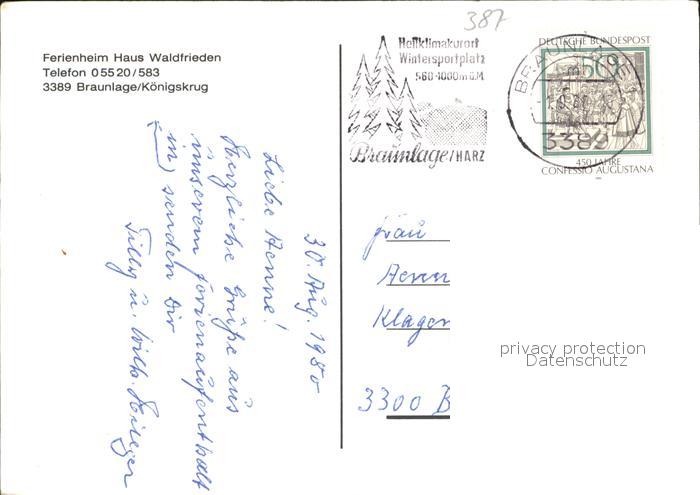 387
Ferienheim Haus Waldfrieden
Telefon 0 55 20 / 583
3389 Braunlage/Königskrug
Heilklimakurort
Wintersportplatz
560-1000m ü.M.
Braunlage/HARZ
DEUTSCHE BUNDESPOST
50
450 JAHRE
CONFESSIO AUGUSTANA
BRAUNLAGE 1
3389
30. Aug. 1980
Liebe Henne!
Herzliche Grüße aus
unserem Ferienaufenthalt
in) senden Dir
Tilly u. Wilh.
Frau
Klagen
3300 B
privacy protection
Datenschutz